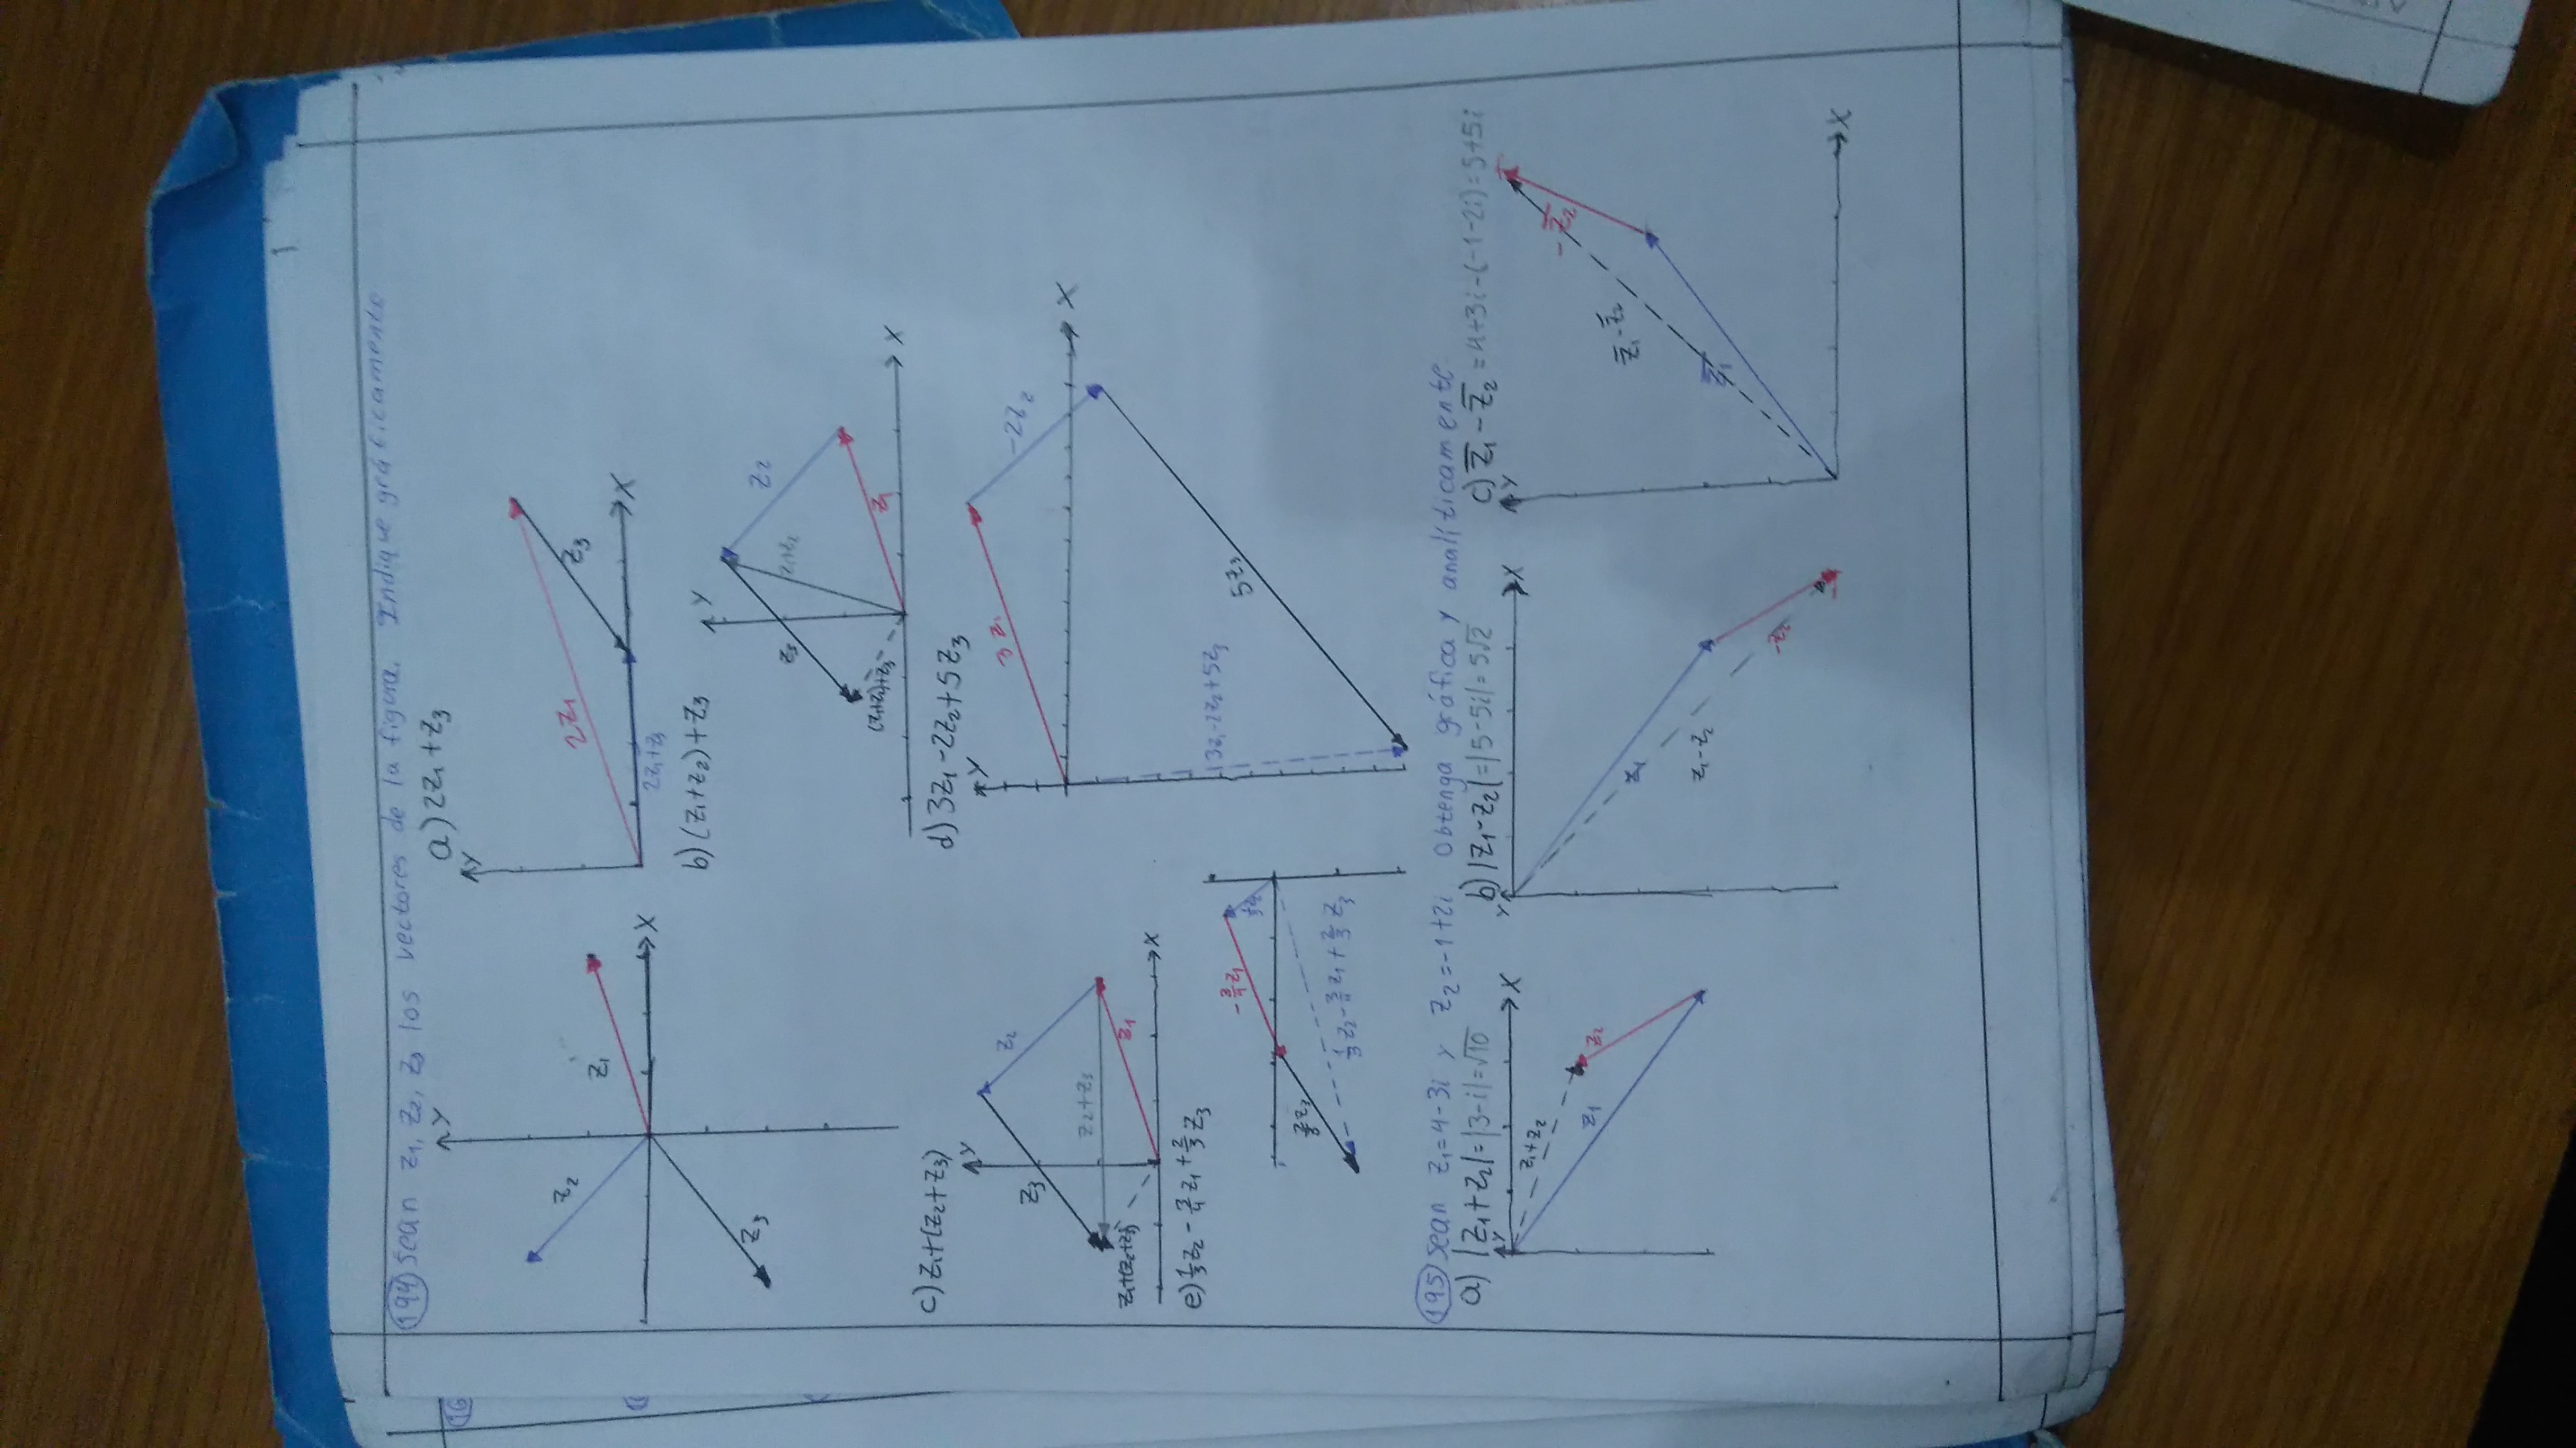 194) Sean z₁, z₂, z₃ los vectores de la figura. Indique gráficamente
Y
z₂
z₁
X
z₃
a) 2z₁+z₃
Y
2z₁
z₃
X
2z₁+z₃
b) (z₁+z₂)+z₃
Y
z₂
z₃
z₁+z₂
(z₁+z₂)+z₃
z₁
X
c) z₁+(z₂+z₃)
Y
z₂
z₃
z₂+z₃
z₁+(z₂+z₃)
z₁
X
d) 3z₁-2z₂+5z₃
Y
3z₁
-2z₂
X
3z₁-2z₂+5z₃
5z₃
e) 1/3 z₂ - 3/4 z₁ + 2/3 z₃
-3/4 z₁
1/3 z₂
2/3 z₃
1/3 z₂ - 3/4 z₁ + 2/3 z₃
195) Sean z₁=4-3i y z₂=-1+2i. Obtenga gráfica y analíticamente
a) |z₁+z₂|=|3-i|=√10
Y
X
z₁+z₂
z₁
z₂
b) |z₁-z₂|=|5-5i|=5√2
Y
X
z₁
z₁-z₂
-z₂
c) z̅₁-z̅₂=4+3i-(-1-2i)=5+5i
Y
-z̅₂
z̅₁-z̅₂
z̅₁
X
16